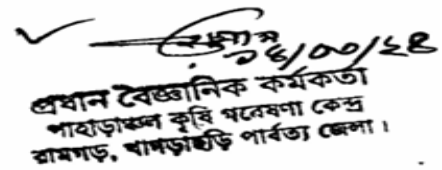 ১৪/০০/২৪
প্রধান বৈজ্ঞানিক কর্মকর্তা
পাহাড়াঞ্চল কৃষি গবেষণা কেন্দ্র
রামগড়, খাগড়াছড়ি পার্বত্য জেলা।